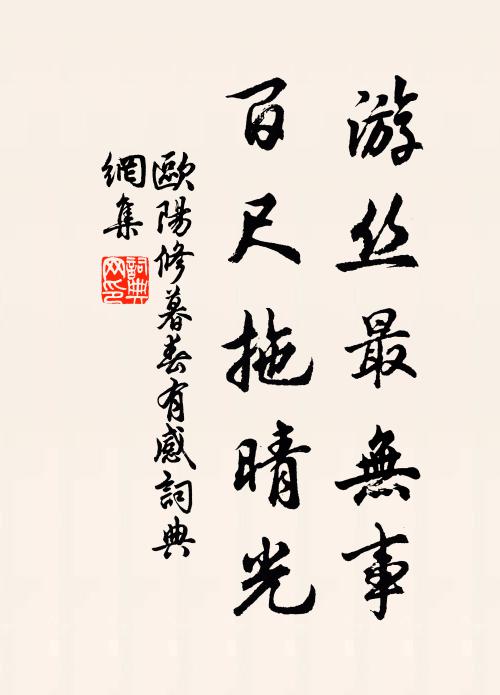 游丝最無事
百尺拖晴光
歐陽修暮春有感詞典
網集
詞典
网印